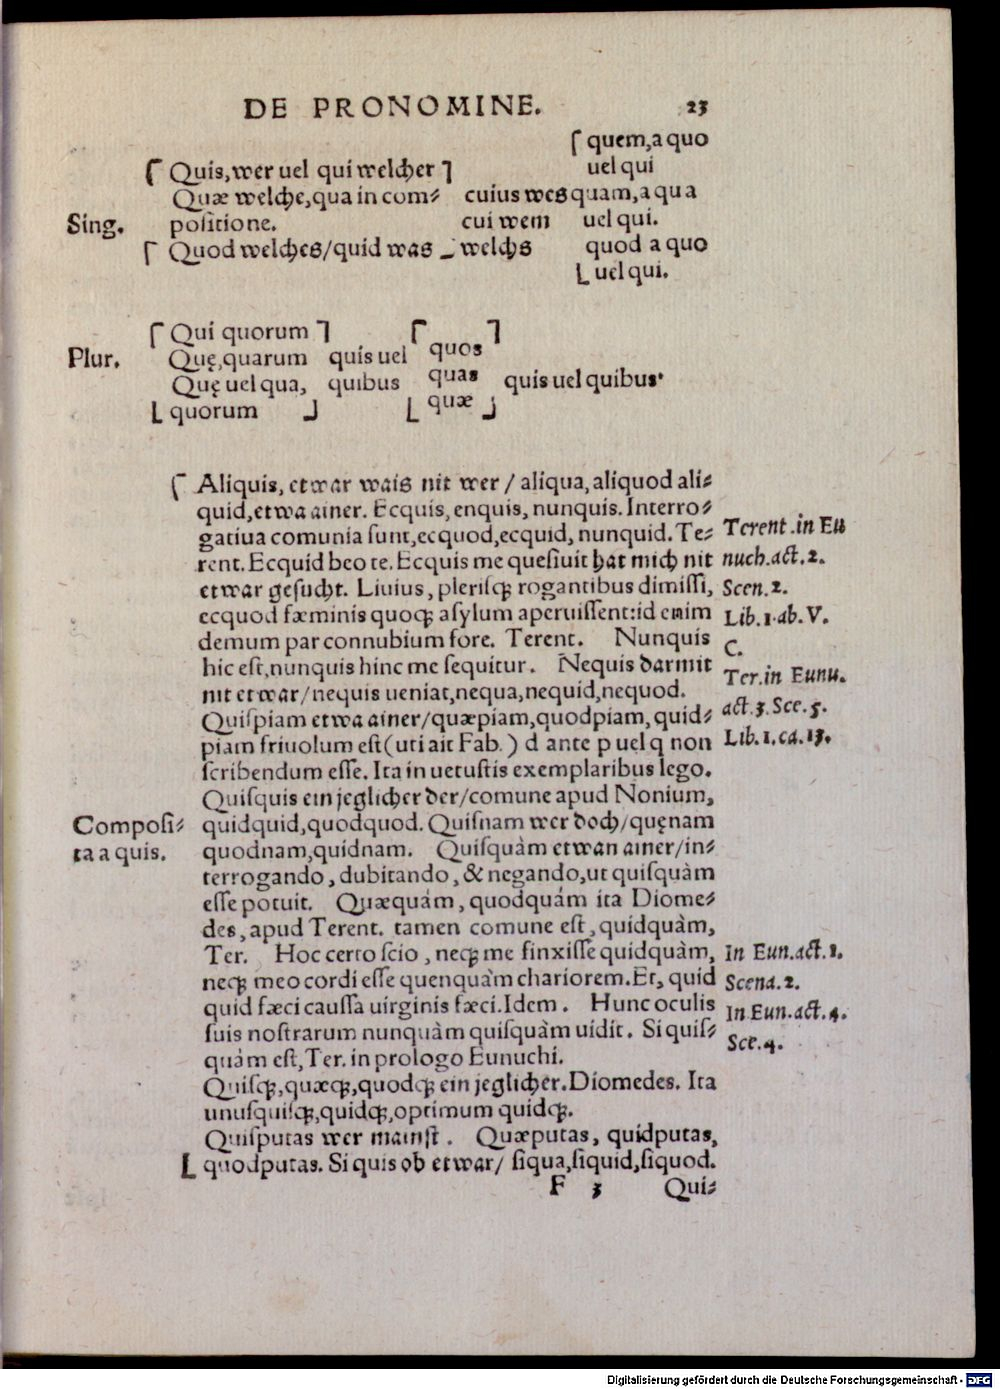 DE PRONOMINE. 23
quem, a quo
Quis, wer uel qui welcher uel qui
Quæ welche, qua in com⸗ cuius wes quam, a qua
Sing. poſitione. cui wem uel qui.
Quod welches/quid was welchs quod a quo
uel qui.
Qui quorum
Plur. Quę, quarum quis uel quos
Quę uel qua, quibus quas quis uel quibus·
quorum quæ
Aliquis, etwar wais nit wer / aliqua, aliquod ali⸗
quid, etwa ainer. Ecquis, enquis, nunquis. Interro⸗
gatiua comunia ſunt, ecquod, ecquid, nunquid. Te⸗
rent. Ecquid beo te. Ecquis me queſiuit hat mich nit
etwar geſucht. Liuius, pleriſqꝫ rogantibus dimiſſi,
ecquod fæminis quoqꝫ aſylum aperuiſſent: id enim
demum par connubium fore. Terent. Nunquis
hic eſt, nunquis hinc me ſequitur. Nequis darmit
nit etwar/nequis ueniat, nequa, nequid, nequod.
Quiſpiam etwa ainer/quæpiam, quodpiam, quid⸗
piam friuolum eſt (uti ait Fab.) d ante p uel q non
ſcribendum eſſe. Ita in uetuſtis exemplaribus lego.
Quiſquis ein jeglicher der/comune apud Nonium,
quidquid, quodquod. Quiſnam wer doch/quęnam
quodnam, quidnam. Quiſquàm etwan ainer/in⸗
terrogando, dubitando, & negando, ut quiſquàm
eſſe potuit. Quæquám, quodquám ita Diome⸗
des, apud Terent. tamen comune eſt, quidquàm,
Ter. Hoc certo ſcio, neqꝫ me finxiſſe quidquàm,
neqꝫ meo cordi eſſe quenquàm chariorem. Et, quid
quid fæci cauſſa uirginis fæci. Idem. Hunc oculis
ſuis noſtrarum nunquàm quiſquàm uidit. Si quiſ⸗
quàm eſt, Ter. in prologo Eunuchi.
Quiſqꝫ, quæqꝫ, quodqꝫ ein jeglicher. Diomedes. Ita
unuſquiſqꝫ, quidqꝫ, optimum quidqꝫ.
Quiſputas wer mainſt. Quæputas, quidputas,
quodputas. Si quis ob etwar/ ſiqua, ſiquid, ſiquod.
F 3 Qui⸗
Compoſi⸗
ta a quis.
Terent. in Eu
nuch. act. 2.
Scen. 2.
Lib. 1. ab. V.
C.
Ter. in Eunu.
act. 3. Sce. 5.
Lib. 1. ca. 13.
In Eun. act. 1.
Scena. 2.
In Eun. act. 4.
Sce. 4.
Digitalisierung gefördert durch die Deutsche Forschungsgemeinschaft - DFG